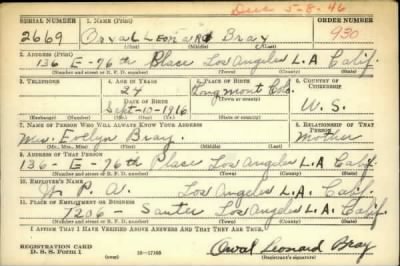 Dec 5-8-46
SERIAL NUMBER 1. NAME (Print) ORDER NUMBER
2669 Orval Leonard Bray 930
(First) (Middle) (Last)
2. ADDRESS (Print)
136 E-76th Place Los Angeles L.A Calif.
(Number and street or R. F. D. number) (Town) (County) (State)
3. TELEPHONE 4. AGE IN YEARS 5. PLACE OF BIRTH 6. COUNTRY OF CITIZENSHIP
24 Longmont Colo.
DATE OF BIRTH (Town or county)
Sept-10-1916 U.S.
(Exchange) (Number) (Mo.) (Day) (Yr.) (State or country)
7. NAME OF PERSON WHO WILL ALWAYS KNOW YOUR ADDRESS 8. RELATIONSHIP OF THAT PERSON
Mrs. Evelyn Bray Mother
(Mr., Mrs., Miss) (First) (Middle) (Last)
9. ADDRESS OF THAT PERSON
136-E-76th Place Los Angeles L.A Calif.
(Number and street or R. F. D. number) (Town) (County) (State)
10. EMPLOYER'S NAME
W. P. A. Los Angeles L.A. Calif.
11. PLACE OF EMPLOYMENT OR BUSINESS
7206- Los Angeles L.A. Calif.
(Number and street or R. F. D. number) (Town) (County) (State)
I AFFIRM THAT I HAVE VERIFIED ABOVE ANSWERS AND THAT THEY ARE TRUE.
REGISTRATION CARD
D. S. S. Form 1 16-17105 Orval Leonard Bray
(Registrant's signature)